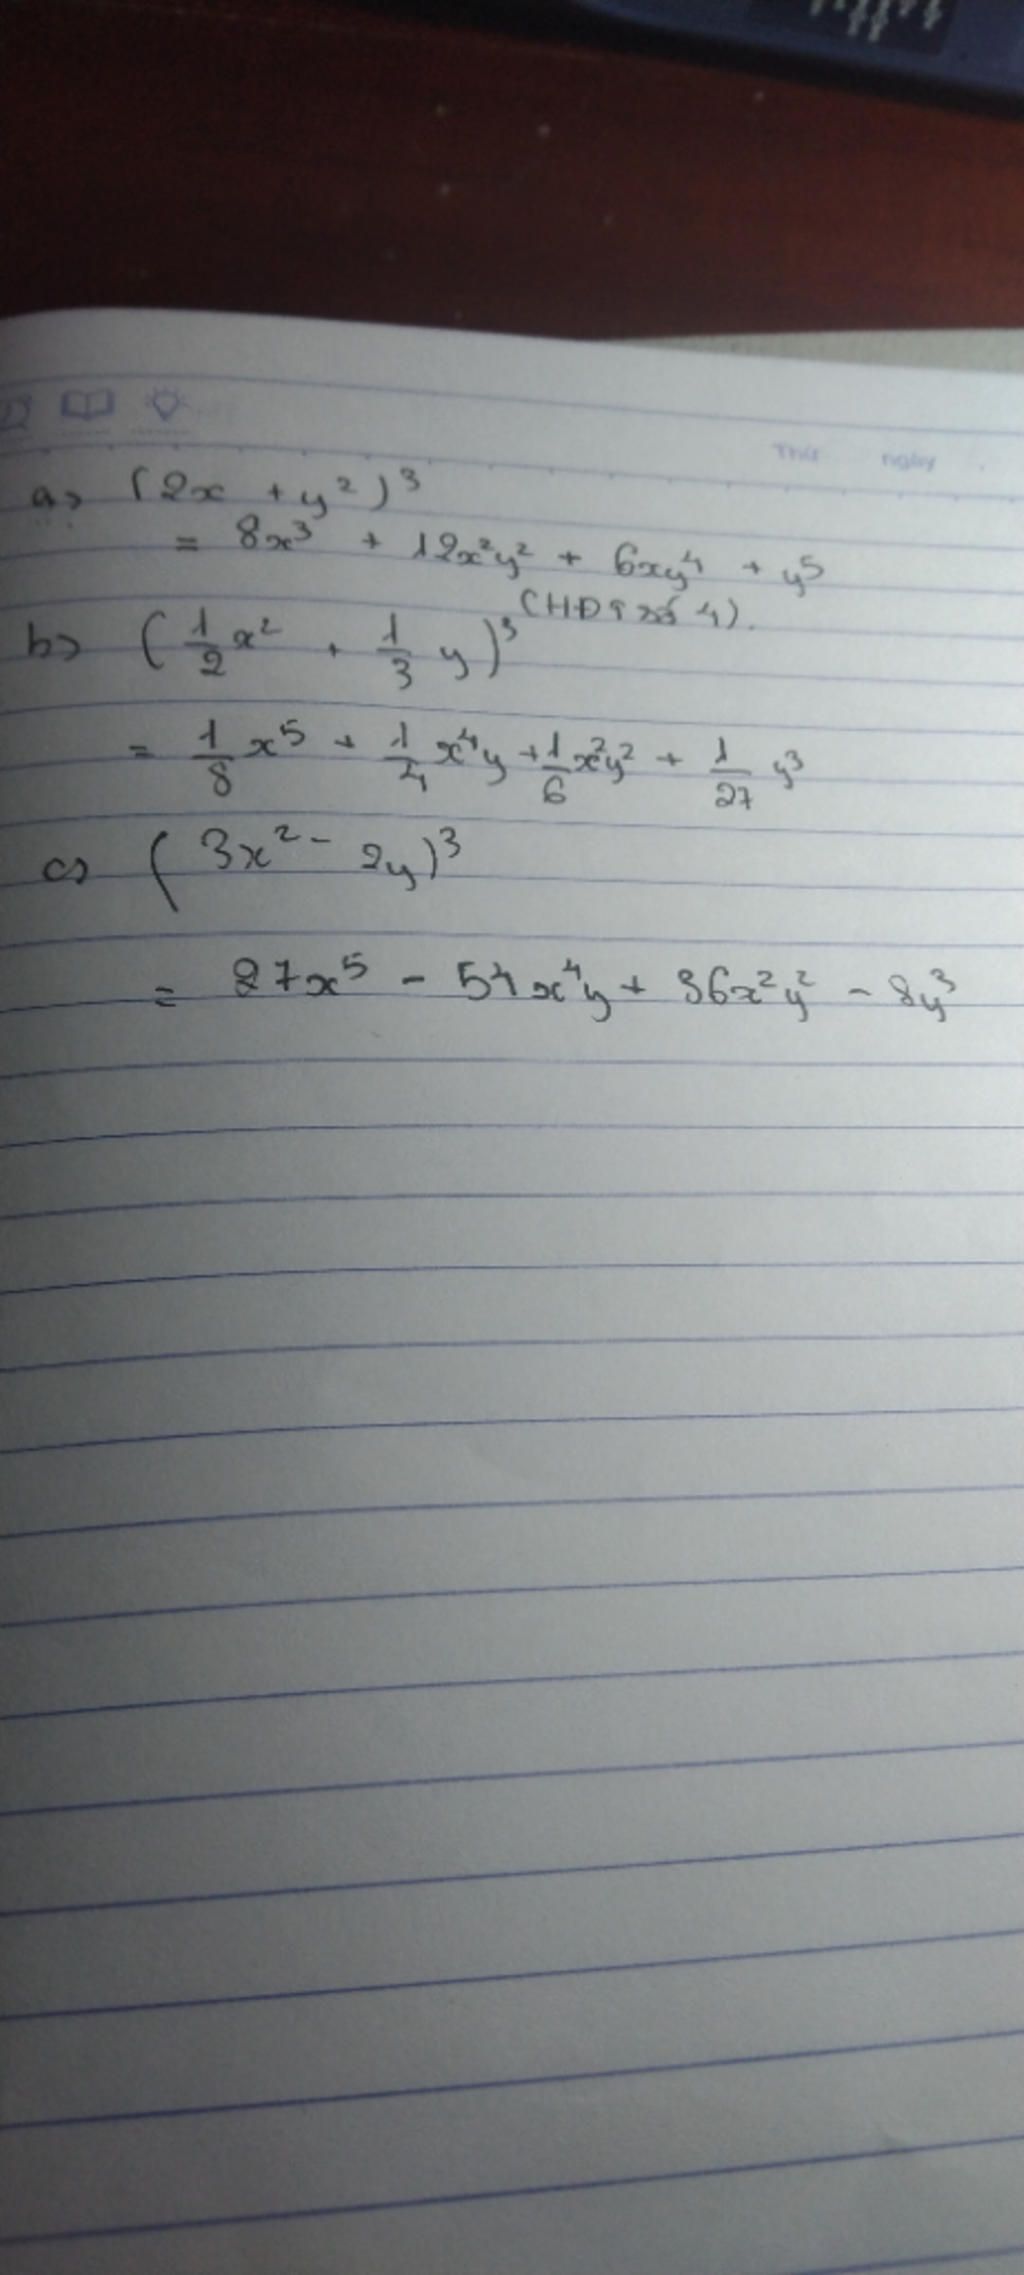 Thứ ngày
a) (2x + y²)³
= 8x³ + 12x²y² + 6xy⁴ + y⁵
(HĐT số 4).
b) (1/2 x² + 1/3 y)³
= 1/8 x⁵ + 1/4 x⁴y + 1/6 x²y² + 1/27 y³
c) (3x² - 2y)³
= 27x⁵ - 54x⁴y + 36x²y² - 8y³